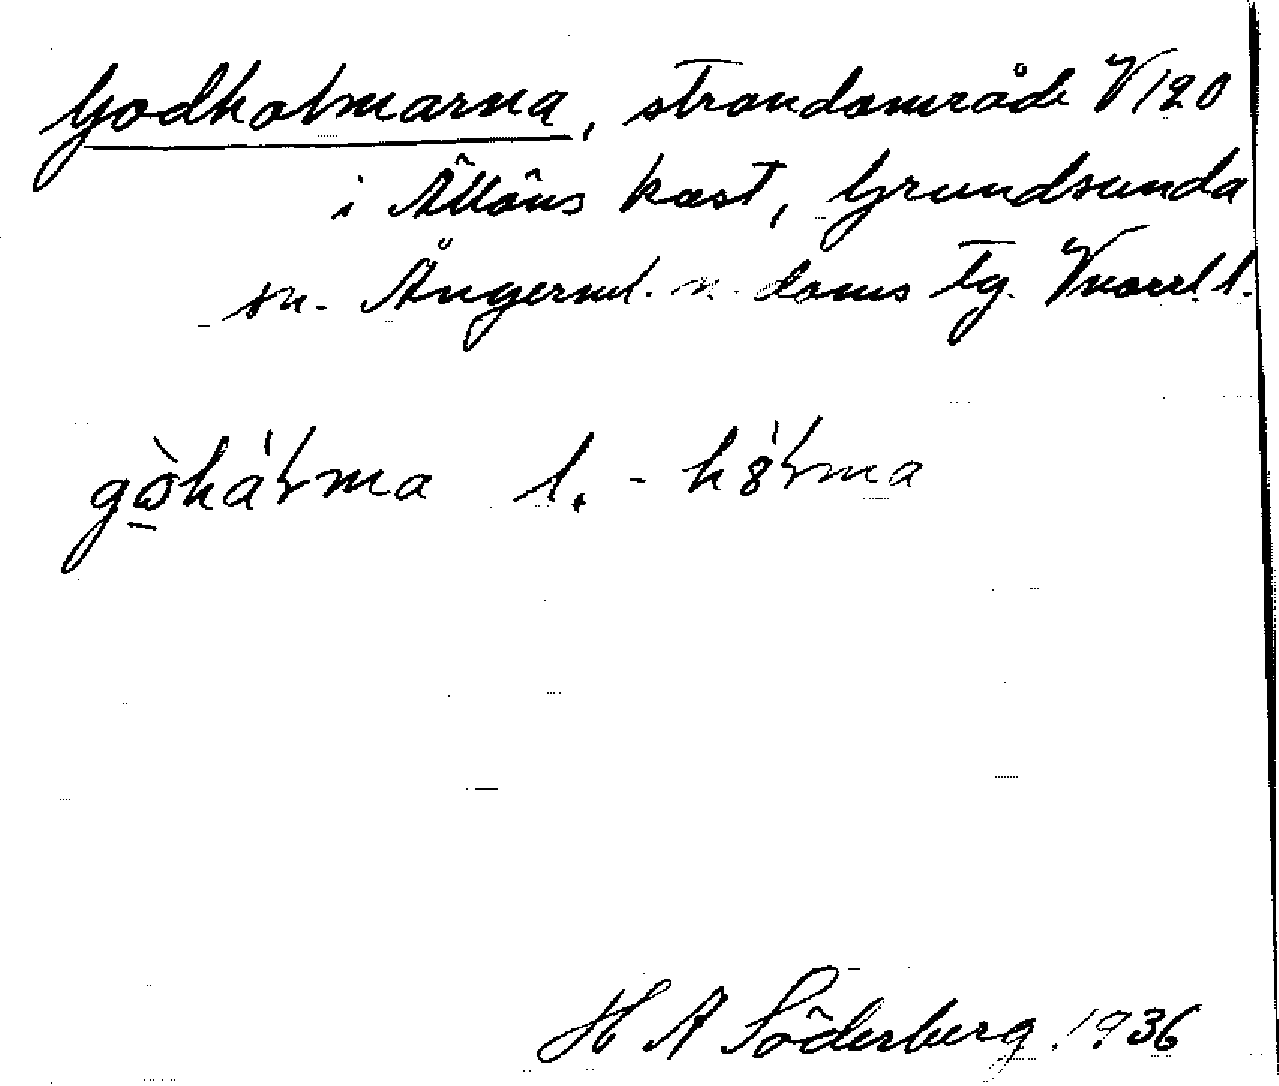 Godholmarna, strandområde V120
i Ällöns kast, Grundsunda
sn. Ångerml. n. doms tg. Vnorrl. l.
gὼhálma l. - hólma
H A Söderberg 1936